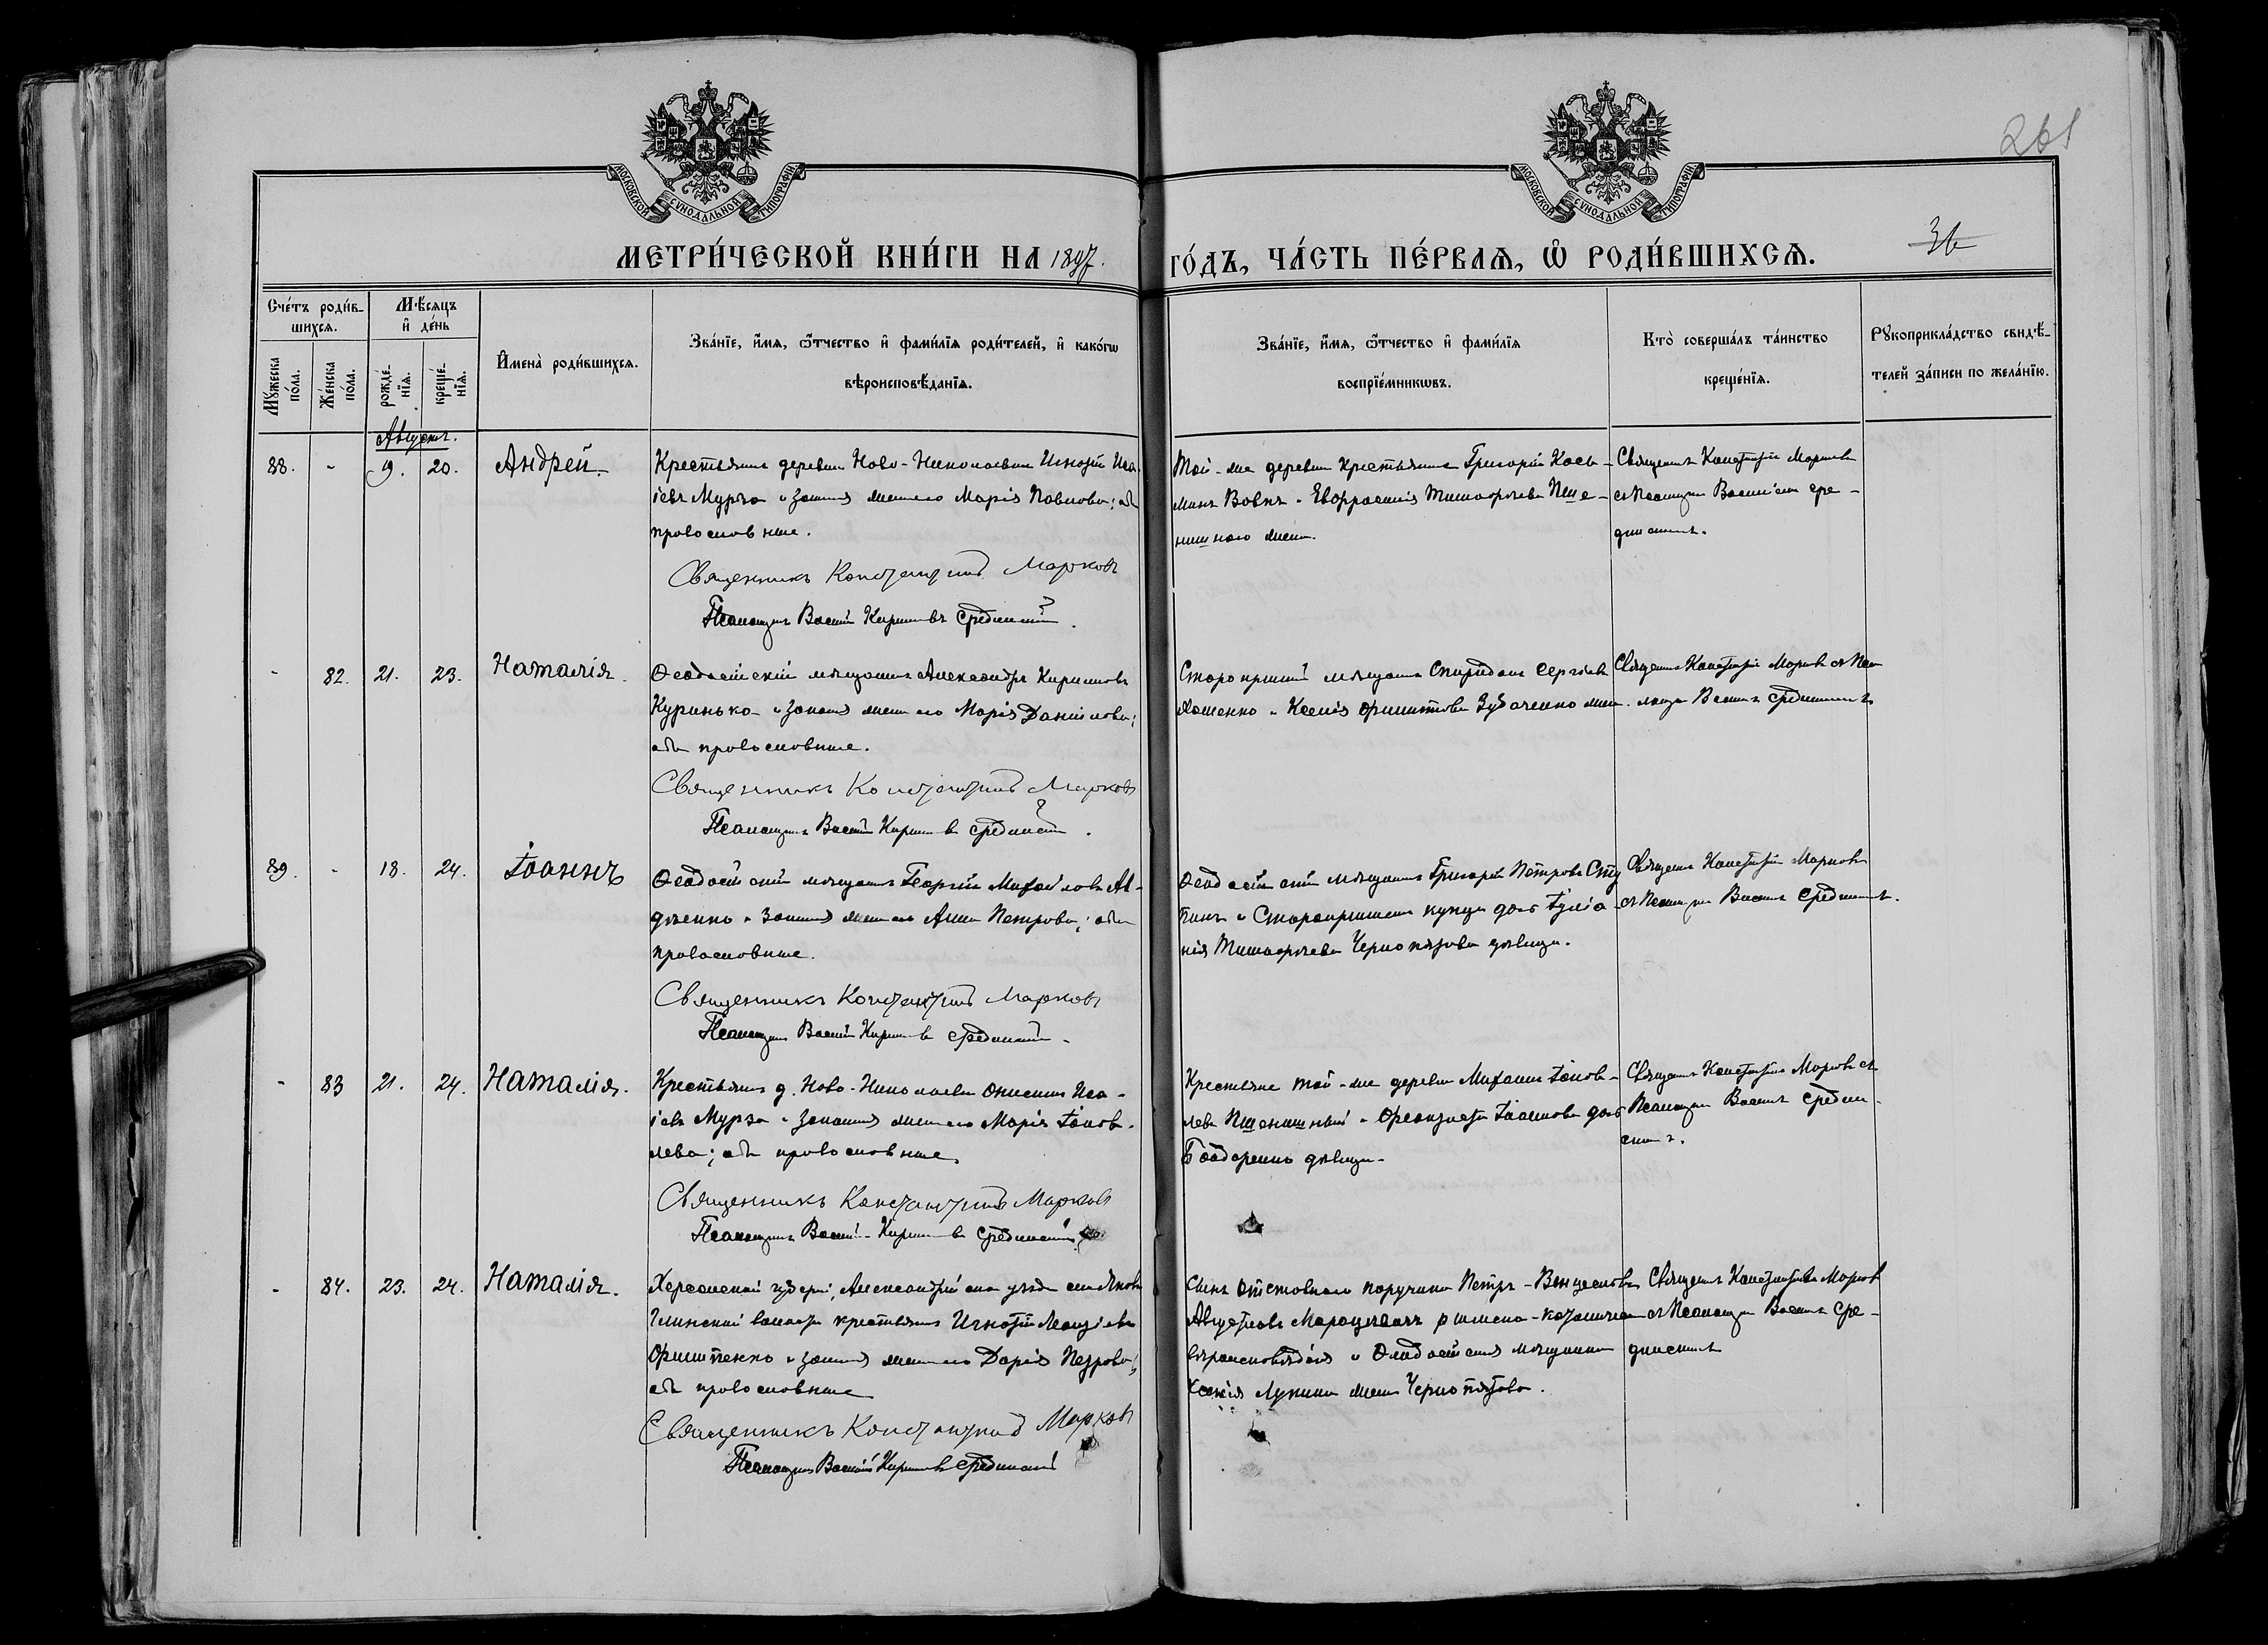 261
МОСКОВСКОЙ СѴНОДАЛЬНОЙ ТИПОГРАФІИ
МОСКОВСКОЙ СѴНОДАЛЬНОЙ ТИПОГРАФІИ
МЕТРИ́ЧЕСКОЙ КНИ́ГИ НА 1897. ГО́ДЪ, ЧА́СТЬ ПЕ́РВАѦ, Ѽ РОДИ́ВШИХСѦ.
36
Сче́тъ роди́в-
шихсѧ.
Мꙋжеска по́ла.
Же́нска по́ла.
Мѣ́сѧцъ
и҆ де́нь
рожде́-
нїѧ.
креще́-
нїѧ.
И҆мена̀ роди́вшихсѧ.
Зва́нїе, и҆́мѧ, ѻ҆́тчество и҆ фами́лїѧ роди́телей, и҆ како́гѡ
вѣроисповѣ́данїѧ.
Зва́нїе, и҆́мѧ, ѻ҆́тчество и҆ фами́лїѧ
воспрїе́мникѡвъ.
Кто̀ соверша́лъ та́инство
креще́нїѧ.
Рꙋкоприкла́дство свидѣ́-
телей за́писи по жела́нїю.
Августъ.
88. - 9. 20. Андрей
Крестьянинъ деревни Ново-Николаевки Игнатій Иса-
іевъ Мурза и законная жена его Марія Павлова; оба
православные.
Священникъ Константинъ Марковъ
Псаломщикъ Василій Кирилловъ Срединскій.
Той-же деревни крестьянинъ Григорій Кось-
минъ Вовкъ и Евфросинія Тимофѣева Пше-
нишнаго жена.
Священникъ Константинъ Марковъ
съ Псаломщикомъ Василіемъ Сре-
динскимъ.
- 82. 21. 23. Наталія.
Ѳеодосійскій мѣщанинъ Александръ Кирилловъ
Куринько и законная жена его Марія Даніилова;
оба православные.
Священникъ Константинъ Марковъ
Псаломщикъ Василій Кирилловъ Срединскій.
Старокрымскій мѣщанинъ Спиридонъ Сергіевъ
и Ксенія Филиппова жена.
Священникъ Константинъ Марковъ съ Пса-
ломщ. Василіемъ Срединскимъ
89. - 18. 24. Іоаннъ
Ѳеодосійскій мѣщанинъ Георгій Михайловъ Ав-
дѣенко и законная жена его Анна Петрова; оба
православные.
Священникъ Константинъ Марковъ
Псаломщикъ Василій Кирилловъ Срединскій.
Ѳеодосійскій мѣщанинъ Григорій Петровъ Сту-
пинъ и Старокрымскаго купца дочь Іуліа-
нія Тимофѣева Чернопятова дѣвица.
Священникъ Константинъ Марковъ
съ Псаломщикомъ Василіемъ Срединскимъ.
- 83 21. 24. Наталія.
Крестьянинъ д. Ново-Николаевки Онисимъ Иса-
іевъ Мурза и законная жена его Марія Іаков-
лева; оба православные
Священникъ Константинъ Марковъ
Псаломщикъ Василій Кирилловъ Срединскій
Крестьяне той-же деревни Михаилъ Іаков-
левъ Пшенишный и Ѳеоктиста Іоаннова дочь
Бондаренко дѣвица.
Священникъ Константинъ Марковъ съ
Псаломщикомъ Василіемъ Средин-
скимъ.
- 84. 23. 24. Наталія.
Херсонской губерніи, Александрійскаго уѣзда
Глинской волости крестьянинъ Игнатій Моисіевъ
Филипенко и законная жена его Дарія Петрова;
оба православные
Священникъ Константинъ Марковъ
Псаломщикъ Василій Кирилловъ Срединскій
Сынъ отставного поручика Петръ-Венцеславъ
Августовъ римско-католическаго
вѣроисповѣданія и Ѳеодосійская мѣщанка
Ксенія Лукина жена Чернопятова.
Священникъ Константинъ Марковъ
съ Псаломщикомъ Василіемъ Сре-
динскимъ